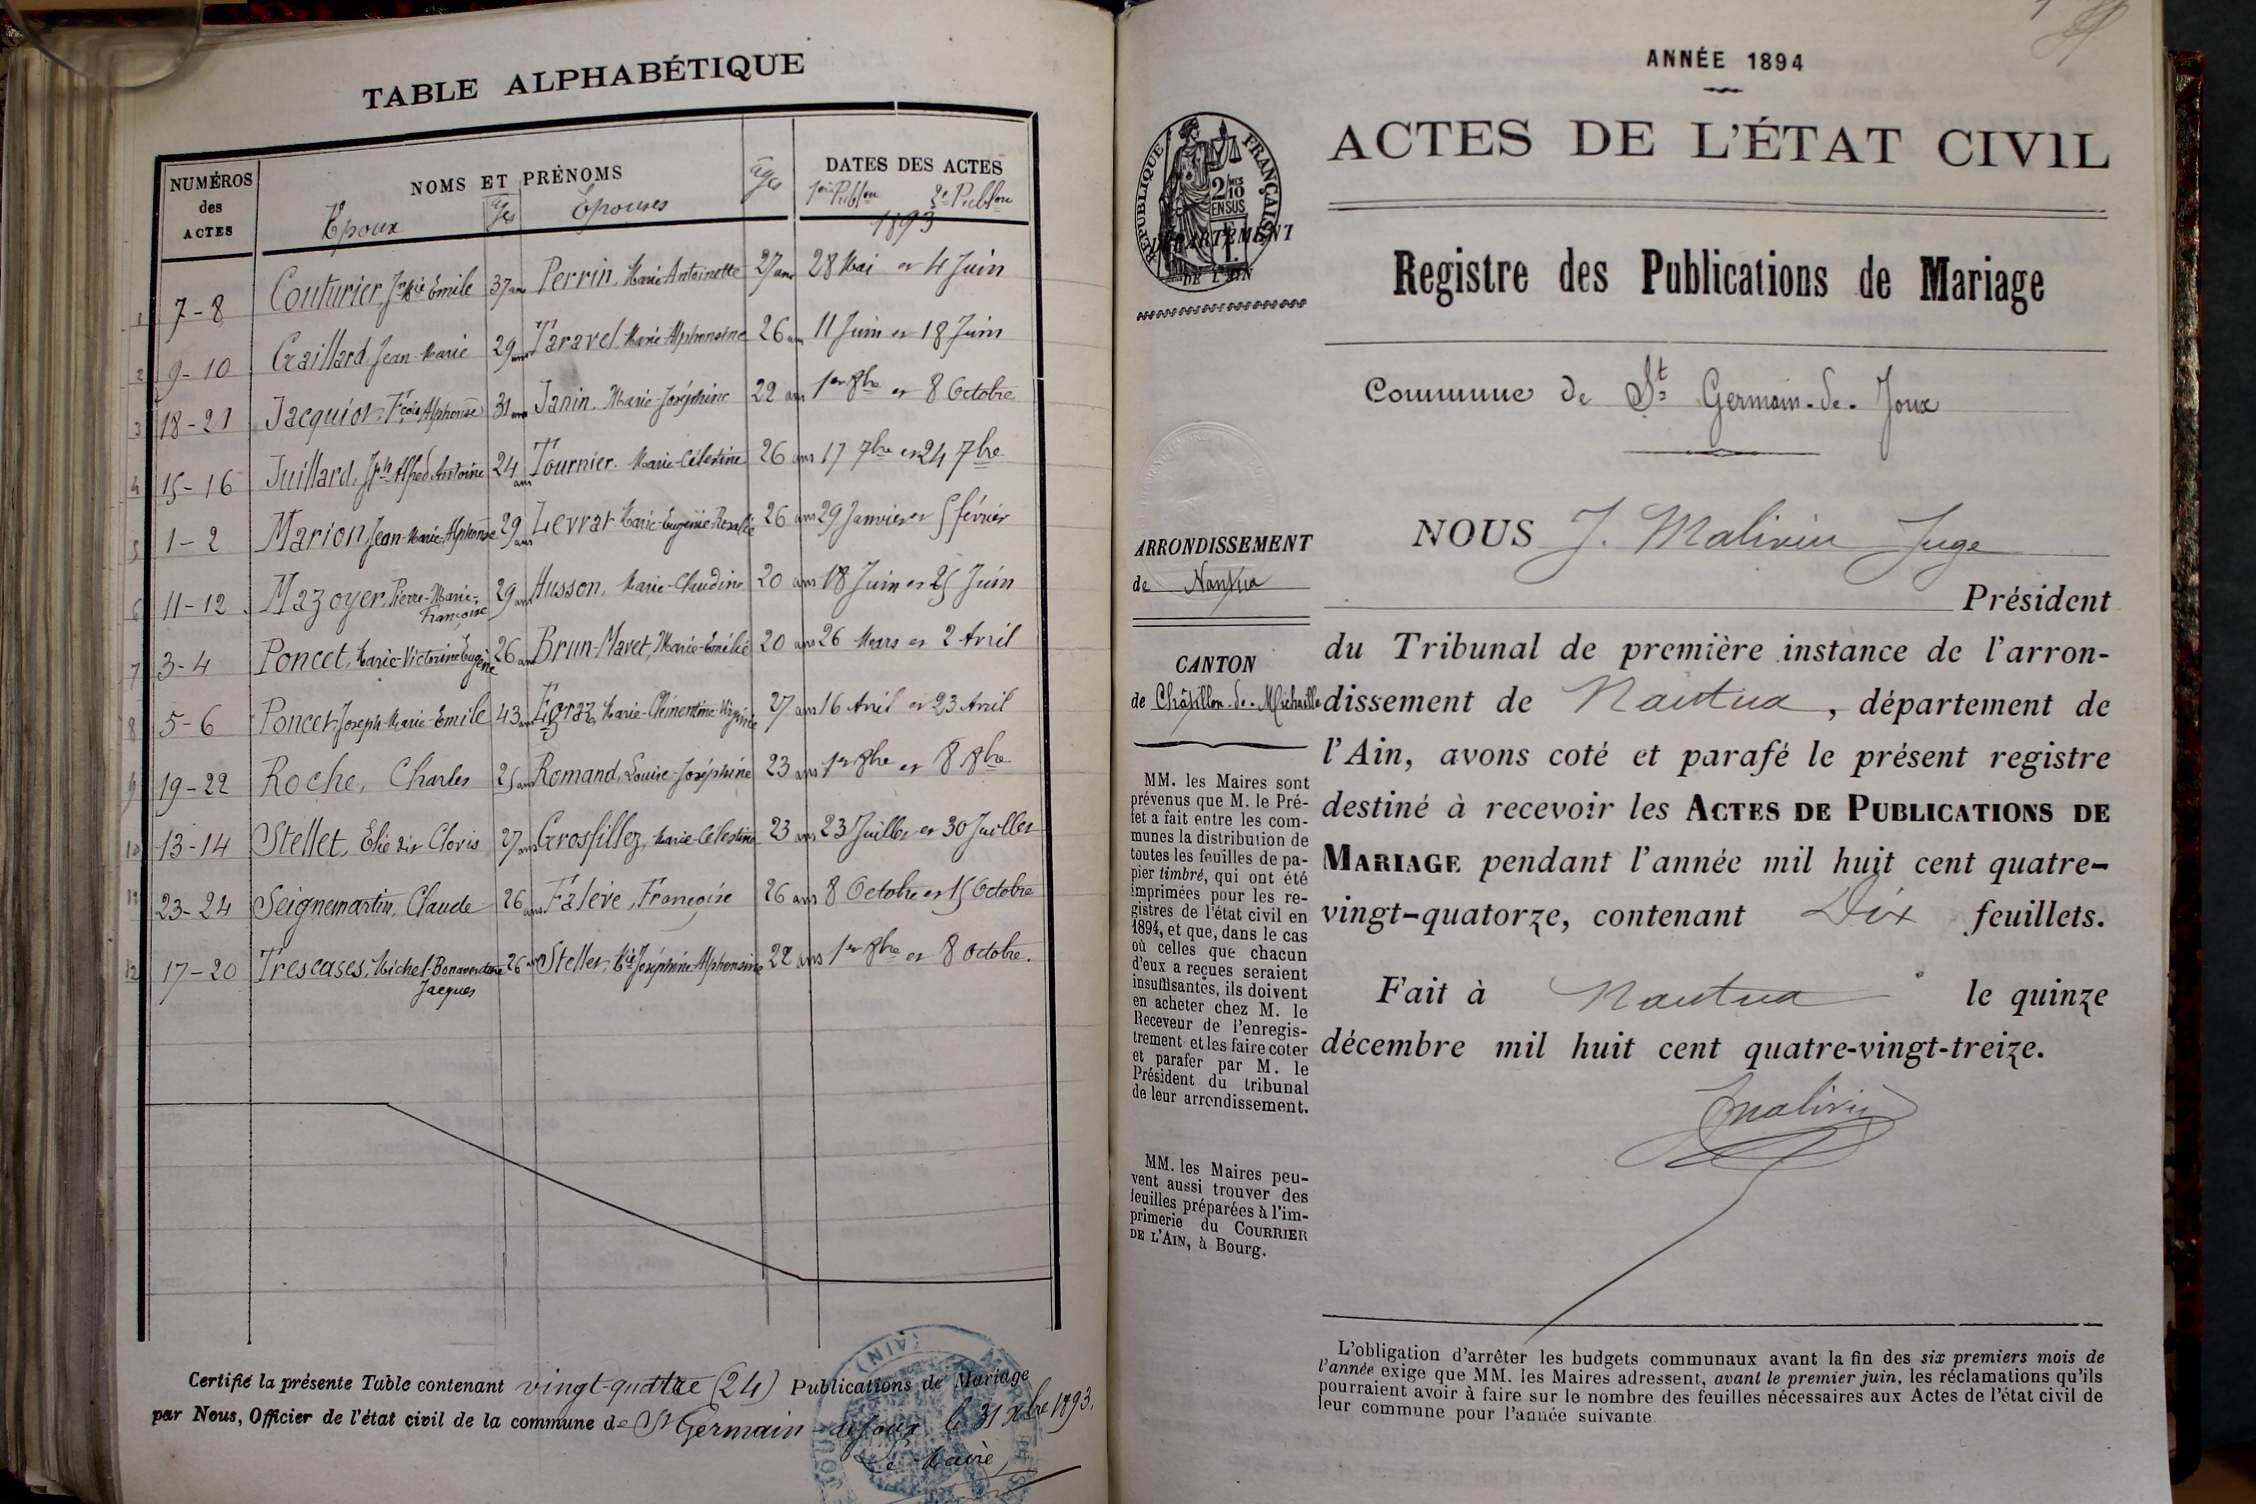 TABLE ALPHABÉTIQUE
NUMÉROS des ACTES
NOMS ET PRÉNOMS
Epoux Ages Epouses âges
DATES DES ACTES
1ère Publon 2e Publon
1893
1 7-8 Couturier, Jh Mie Emile 37 ans Perrin, Marie Antoinette 27 ans 28 Mai et 4 Juin
2 9-10 Gaillard, Jean-Marie 29 ans Taravel, Marie-Alphonsine 26 ans 11 Juin et 18 Juin
3 18-21 Jacquiot, Fçois Alphonse 31 ans Janin, Marie-Joséphine 22 ans 1er 8bre et 8 Octobre
4 15-16 Juillard, Jph Alfred Antoine 24 ans Tournier, Marie-Célestine 26 ans 17 7bre et 24 7bre
5 1-2 Marion, Jean-Marie-Alphonse 29 ans Levrat, Marie-Eugénie Rosalie 26 ans 29 Janvier et 5 février
6 11-12 Mazoyer, Pierre-Marie-François 29 ans Husson, Marie-Claudine 20 ans 18 Juin et 25 Juin
7 3-4 Poncet, Marie-Victorin Eugène 26 ans Brun-Mavet, Marie-Emélie 20 ans 26 Mars et 2 Avril
8 5-6 Poncet, Joseph-Marie-Emile 43 ans Egraz, Marie-Clémentine-Virginie 27 ans 16 Avril et 23 Avril
9 19-22 Roche, Charles 25 ans Romand, Louise-Joséphine 23 ans 1er 8bre et 8 8bre
10 13-14 Stellet, Elie dit Clovis 27 ans Grosfilley, Marie-Célestine 23 ans 23 Juillet et 30 Juillet
11 23-24 Seignemartin, Claude 26 ans Falève, Françoise 26 ans 8 Octobre et 15 Octobre
12 17-20 Trescases, Michel-Bonaventure Jacques 26 ans Stellet, Mie Joséphine Alphonsine 22 ans 1er 8bre et 8 Octobre.
Certifié la présente Table contenant vingt-quatre (24) Publications de Mariage
par Nous, Officier de l'état civil de la commune de St Germain-de-Joux le 31 Xbre 1893.
Le Maire,
ANNÉE 1894
ACTES DE L'ÉTAT CIVIL
RÉPUBLIQUE FRANÇAISE
2/10 EN SUS
DÉPARTEMENT
DE L'AIN
Registre des Publications de Mariage
Commune de St Germain-de-Joux
ARRONDISSEMENT
de Nantua
CANTON
de Châtillon-de-Michaille
MM. les Maires sont
prévenus que M. le Pré-
fet a fait entre les com-
munes la distribution de
toutes les feuilles de pa-
pier timbré, qui ont été
imprimées pour les re-
gistres de l'état civil en
1894, et que, dans le cas
où celles que chacun
d'eux a reçues seraient
insuffisantes, ils doivent
en acheter chez M. le
Receveur de l'enregis-
trement et les faire coter
et parafer par M. le
Président du tribunal
de leur arrondissement.
MM. les Maires peu-
vent aussi trouver des
feuilles préparées à l'im-
primerie du COURRIER
DE L'AIN, à Bourg.
NOUS J. Malivin Juge
Président
du Tribunal de première instance de l'arron-
dissement de Nantua, département de
l'Ain, avons coté et parafé le présent registre
destiné à recevoir les ACTES DE PUBLICATIONS DE
MARIAGE pendant l'année mil huit cent quatre-
vingt-quatorze, contenant Dix feuillets.
Fait à Nantua le quinze
décembre mil huit cent quatre-vingt-treize.
JMalivin
L'obligation d'arrêter les budgets communaux avant la fin des six premiers mois de
l'année exige que MM. les Maires adressent, avant le premier juin, les réclamations qu'ils
pourraient avoir à faire sur le nombre des feuilles nécessaires aux Actes de l'état civil de
leur commune pour l'année suivante.